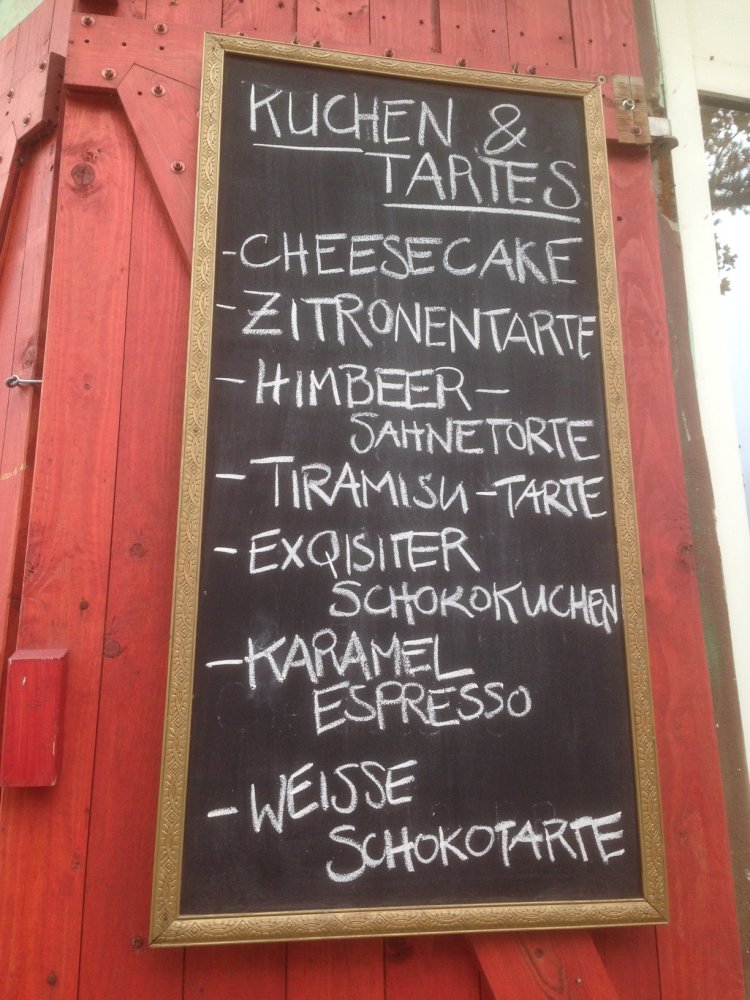 KUCHEN &
TARTES
- CHEESECAKE
- ZITRONENTARTE
- HIMBEER-
SAHNETORTE
- TIRAMISU-TARTE
- EXQISITER
SCHOKOKUCHEN
- KARAMEL
ESPRESSO
- WEISSE
SCHOKOTARTE